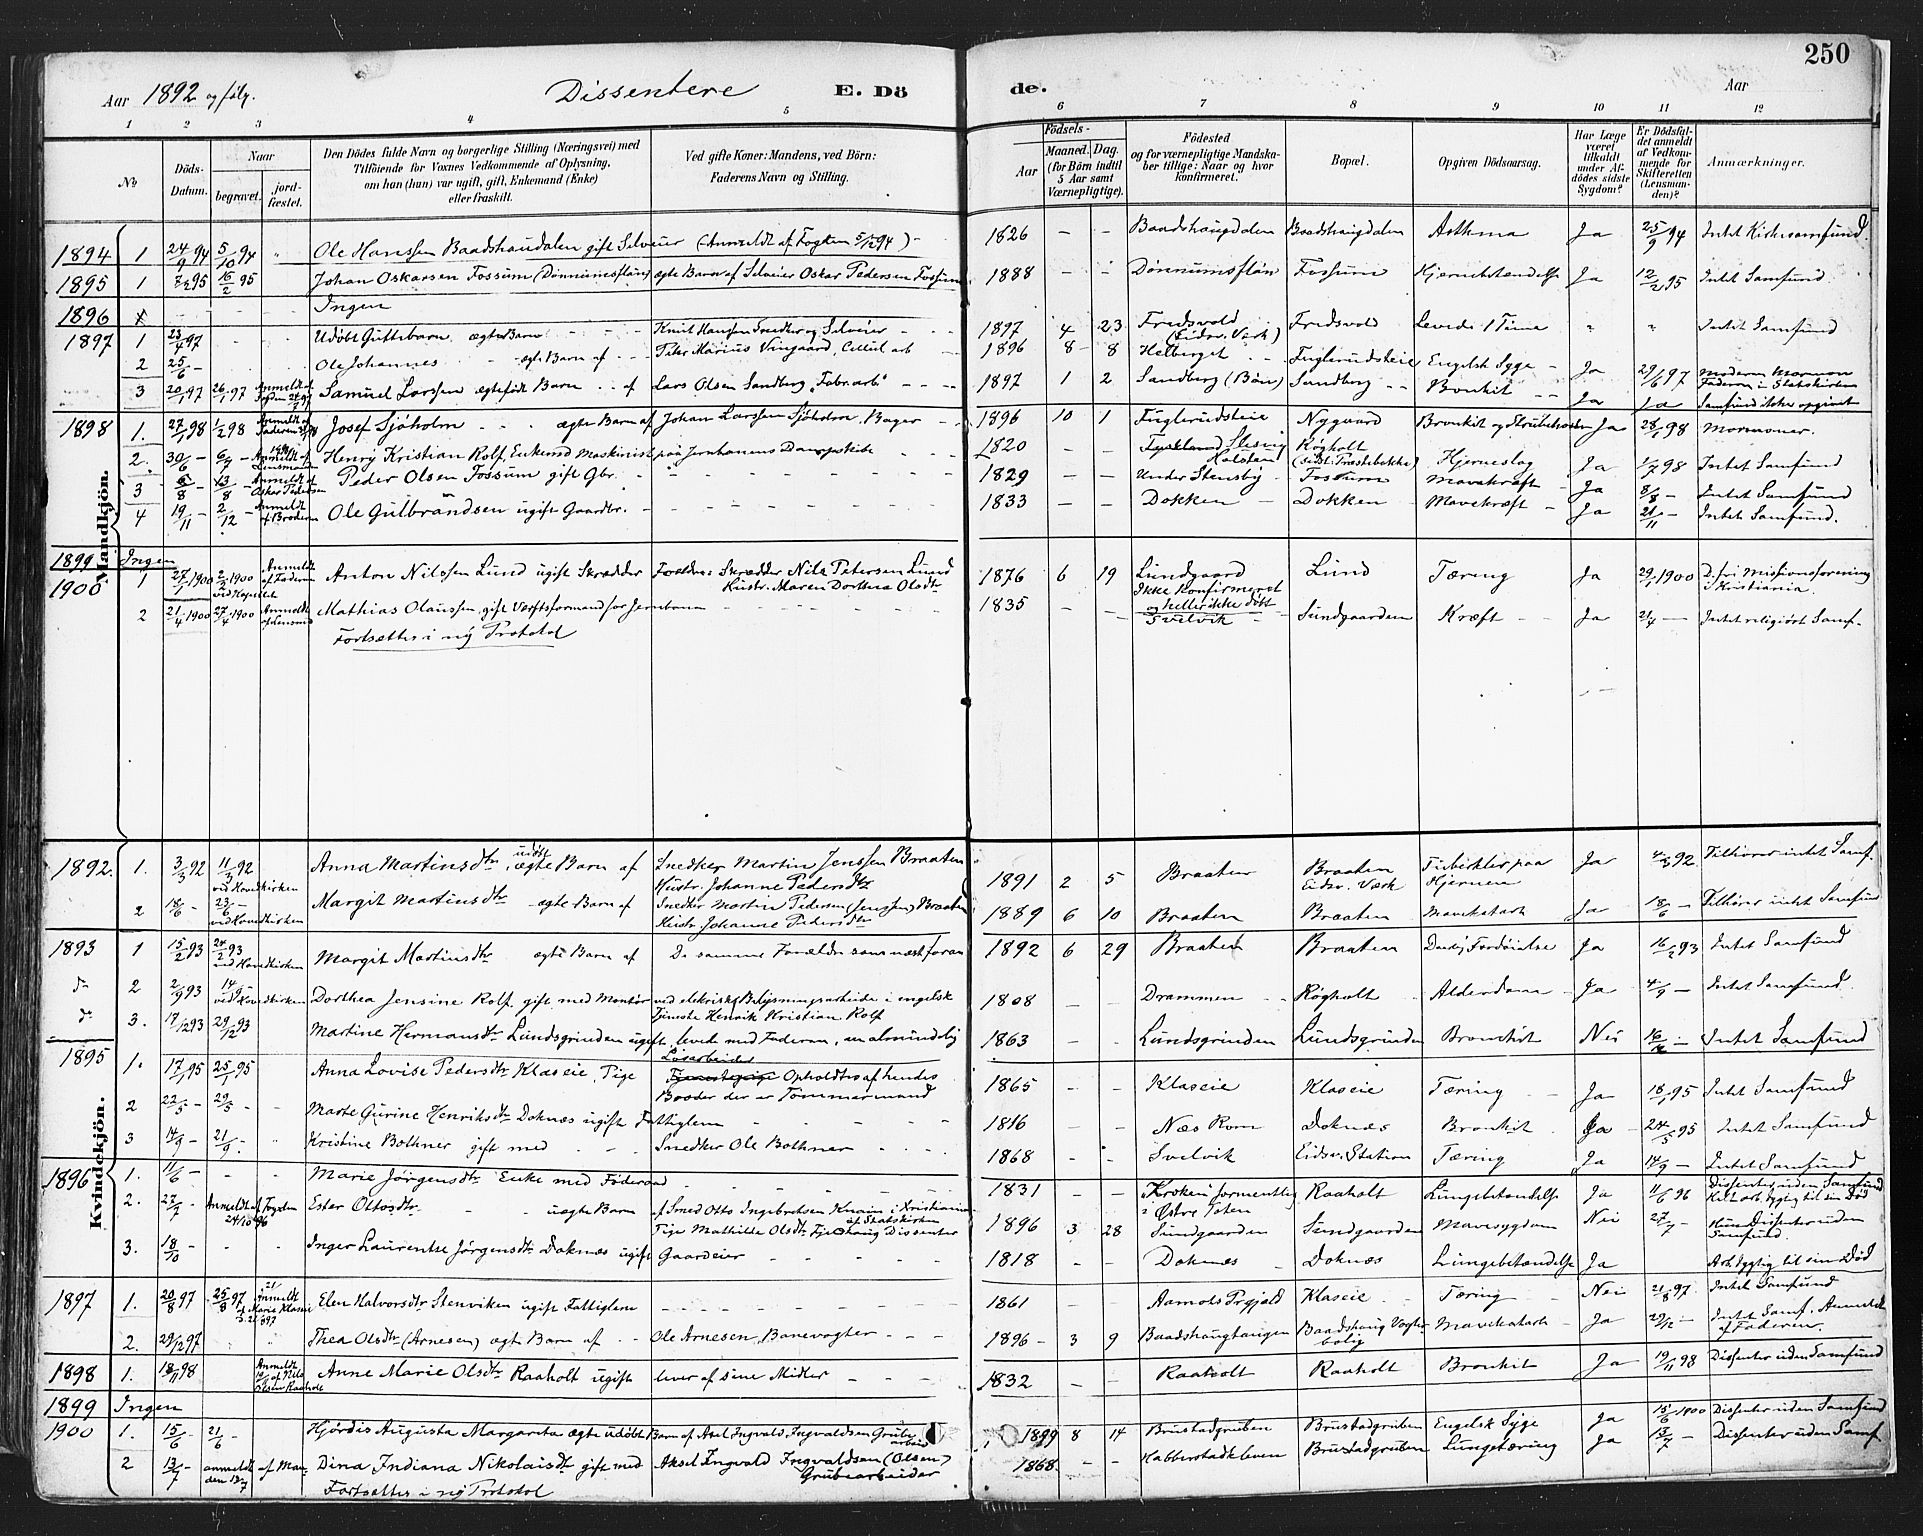 250
Aar 1892 og følg. Dissentere E. Dö de. Aar
1 2 3 4 5 6 7 8 9 10 11 12
No
Döds-Datum.
Naar
begravet.
jord-fæstet.
Den Dödes fulde Navn og borgerlige Stilling (Næringsvei) med
Tilföiende for Voxnes Vedkommende af Oplysning,
om han (hun) var ugift, gift, Enkemand (Enke)
eller fraskilt.
Ved gifte Koner: Mandens, ved Börn:
Faderens Navn og Stilling.
Födsels-
Aar
Maaned. Dag.
(for Börn indtil
5 Aar samt
Værnepligtige).
Födested
og for værnepligtige Mandska-
ber tillige: Naar og hvor
konfirmeret.
Bopæl.
Opgiven Dödsaarsag.
Har Læge
været
tilkaldt
under Af-
dödes sidste
Sygdom?
Er Dödsfal-
det anmeldt
af Vedkom-
mende for
Skifteretten
(Lensman-
den)?
Anmærkninger.
Mandkjön.
1894 1 24/9 94 5/10 94 " Ole Hanssen Baadshaudalen gift Selveier (Anmeldt af Fogden 5/12 94) 1826 – – Baadshaugdalen Baadshaugdalen Asthma Ja 25/9 94 Intet Kirkesamfund.
1895 1 7/2 95 16/2 95 Johan Oskarsen Fossum (Dønnumsflön) ægte Barn af Selveier Oskar Pedersen Fossum 1888 – – Dönnumsflön Fossum Hjernebetændelse Ja 12/2 95 Intet Samfund
1896 Ingen
1897 1 23/4 97 Udöbt Guttebarn ægte Barn Knut Hansen Snedker og Selveier 1897 4 23 Fredsvold (Eidsv. Værk) Fredsvold Levede 1 Time " " Intet Samfund
2 25/6 – Ole Johannes ægte Barn af Marius Vingaard, Cellul. arb 1896 8 8 Helberget Fuglerudsteie Engelsk Syge Ja 29/6 97 Moderen Mormon Faderen i Statskirken
3 20/1 97 26/1 97 Samuel Larssen ægtefödt Barn af Lars Olsen Sandberg, Fabr. arb. 1897 1 2 Sandberg (Bön) Sandberg Bronkit Ja Ja Samfund ikke opgivet
1898 1. 27/1 98 1/2 98 Josef Sjöholm ægte Barn af Johan Larssen Sjöholm, Bager 1896 10 1 Fuglerudsteie Nygaard Bronkit og Strubehoste Ja 28/1 98 Mormoner.
2. 30/6 – 6/7 – Anmeldt af Lensmanden Henry Kristian Rolf, Enkemd Maskinist paa Jernbanens Dampskibe 1820 – – Tyskland Slesvig Holsten Røgholt (sidst Træstebakke) Hjerneslag Ja 1/7 98 Intet Samfund
3 5/8 – 13/8 – Anmeldt af Oskar Pedersen Peder Olsen Fossum gift Gbr. 1829 – – Under Stensby Fossum Mavekræft Ja 8/8 – Intet Samfund
4 19/11 – 2/12 Anmeldt af Broderen Ole Gulbrandsen ugift Gaardbr. 1833 – – Dokken Dokken Mavekræft Ja 21/11 – Intet Samfund.
1899 Ingen
1900 1 27/1 1900 2/3 1900 ved Kapellet Anmeldt af Faderen Anton Nilssen Lund ugift Skrædder Foreldre: Skrædder Nils Petersen Lund Hustr. Maren Dorthea Olsdtr 1876 6 19 Lundgaard Ikke Konfirmeret og heller ikke döbt Lund Tæring Ja 29/1 1900 D. fri Missionsforening i Kristiania.
2 21/4 1900 27/4 1900 Anmeldt af Lensmd Mathias Olaussen, gift Værftsformand for Jernbanen 1835 – – Svelvik Sundgaarden Kræft Ja 21/4 – Intet religiöst Samf.
Fortsættes i ny Protokol
Kvindekjön.
1892. 1. 3/3 92 11/3 92 ved Hovedkirken Anna Martinsdtr, udöbt ægte Barn af Snedker Martin Jenssen Braaten Hustr. Johanne Pedersdtr 1891 2 5 Braaten Braaten Eidsv. Værk Tuberkler paa Hjernen Ja 4/3 92 Tilhörer intet Samf.
2 18/6 – 23/6 – ved Hovedkirken Margit Martinsdtr ægte Barn af Snedker Martin Pedersen (Jenssen) Braaten Hustr. Johanne Pedersdtr 1889 6 10 Braaten Braaten Mavekatarh Ja 18/6 – Tilhörer intet Samfund
1893 1 15/2 93 24/2 93 ved Hovedkirken Margit Martinsdtr ægte Barn af De samme Foreldre som næst foran 1892 6 29 Braaten Braaten Daarlig Fordöielse Ja 16/2 93 Intet Samfund
do 2 2/9 93 14/9 – ved Hovedkirken Dorthea Jensine Rolf, gift med Montör ved elektrisk Belysningsarbeide i engelsk Tjeneste Henrik Kristian Rolf 1808 – – Drammen Røgholt Alderdom Ja 4/9 – Intet Samfund
do 3. 17/12 93 29/12 93 Martine Hermansdtr Lundsgrinden ugift, levede med Faderen, en almindelig Lösarbeider 1863 – – Lundsgrinden Lundsgrinden Bronkit Nei Intet Samfund
1895 1. 17/1 95 25/1 95 Anna Lovise Pedersdtr Klaseie, Pige Opholdtes af hendes Broder der er Tömmermand 1865 – – Klaseie Klaseie Tæring Ja 18/1 95 Intet Samfund
2 22/5 – 29/5 – Marte Gurine Henriksdtr Doknæs ugift Fattiglem 1816 – – Næs Rom Doknæs Bronkit Ja 24/5 95 Intet Samfund
3 14/9 – 21/9 – Kristine Bothner gift med Snedker Ole Bothner 1868 – – Svelvik Eidsv. Station Tæring Ja 14/9 – Intet Samfund
1896 1. 11/6 – Marie Jørgensdtr Enke med Föderaad 1831 – – "Kroken" formentlig i Østre Toten Raaholt Lungebetændelse Ja 11/6 96 Dissenter uden Samfund
2. 27/7 – Anmeldt af Fogden 24/10 96 Ester Ottosdtr uægte Barn af Smed Otto Ingebretsen Knain i Kristiania af Statskirken Pige Mathilde Olsdtr Fjeldhaug Dissenter 1896 3 28 Sundgaarden Sundgaarden Mavesygdom Nei 27/7 – Hun Dissenter uden Samfund
3. 18/10 – Inger Laurentse Jörgensdtr Doknæs ugift Gaardeier 1818 – – Doknæs Doknæs Lungebetændelse Ja Arb. dygtig til sin Död
1897 1. 20/8 97 25/8 97 Anmeldt af Marie Klaseie Elen Halvorsdtr Stenviken ugift Fattiglem 1861 Aamots Prgjæld Klaseie Tæring Nei 21/8 97. Intet Samfund
2. 29/12 97 Thea Olsdtr (Arnesen) ægt Barn af Ole Arnesen, Banevogter 1896 – 3 9 Baadshaugtangen Baadshaug Vogterbolig Mavekatarh Ja 29/12 – Intet Samf. Anmeldt af Faderen.
1898 1. 18/11 98 Anmeldt 19/11 af Nils Olsen Raaholt Anne Marie Olsdtr Raaholt ugift lever af sine Midler 1832 – – Raaholt Raaholt Bronkit Ja 19/11 98 Dissenter uden Samfund
1899 Ingen
1900 1. 15/6 – 21/6 – Hjördis Augusta Margareta ægte udöbt Barn af Axel Ingvald Ingvaldsen Grube arbeid 1899 8 14 Brustadgruben Brustadgruben Engelsk Syge Ja 15/6 1900 Dissenter uden Samfund
2 13/7 – anmeldt af Manden 13/7 Dina Indiana Nikolaisdtr gift med Aksel Ingvald Ingvaldsen (Olsen) Grubearbeider 1868. – – Habberstadkleven Brustadgruben Lungetæring Ja 13/7 – Dissenter uden Samf.
Fortsættes i ny Protokol